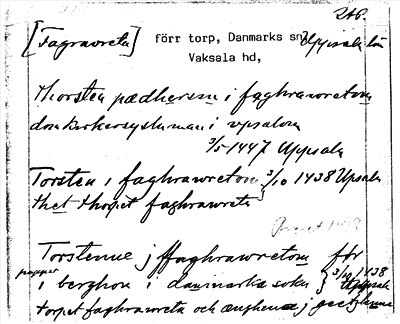 [Fagrawreta] förr torp, Danmarks sn Uppsala län
Vaksala hd,
Thorsten pædhersson i faghrawretom
domkirkosysluman i vpsalom
3/5 1447 Uppsala
Torsten i faghrawretom 3/10 1438 Uppsala
thet thorpet faghrawreta
Torstenne j ffaghrawretom för
i berghom i danmarka sokn 3/10 1438 Uppsala
torpet faghrawreta och ænghenæ j